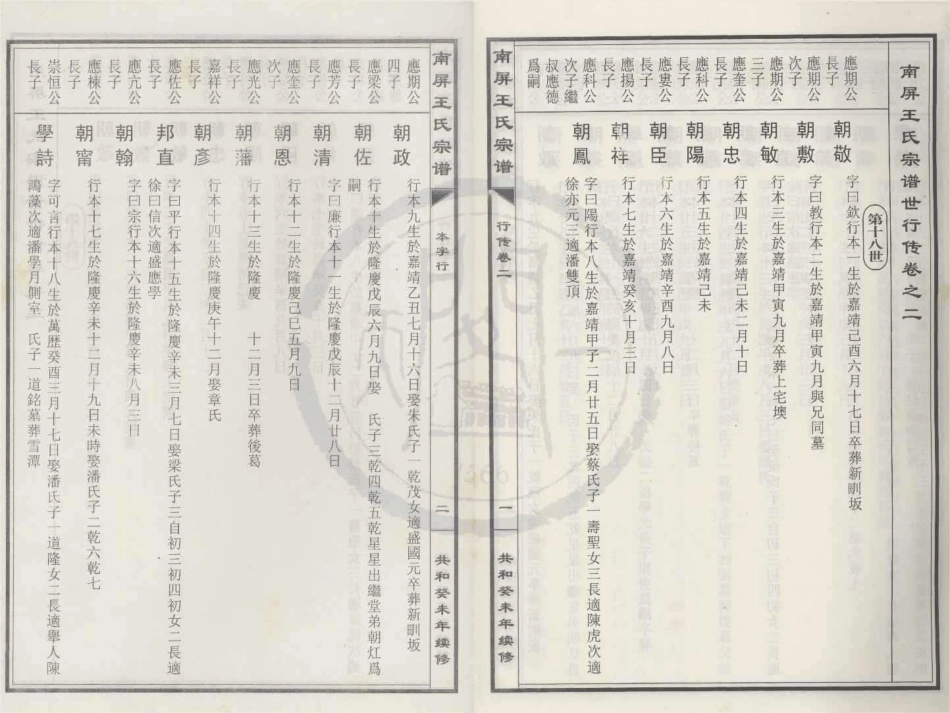 南屏王氏宗谱世行传卷之二
第十八世
應期公
長子
朝敬
字曰欽行本一生於嘉靖己酉六月十七日卒葬新剬坂
應期公
次子
朝敷
字曰教行本二生於嘉靖甲寅九月與兄同墓
應期公
三子
朝敏
行本三生於嘉靖甲寅九月卒葬上宅墺
應奎公
長子
朝忠
行本四生於嘉靖己未二月十日
應科公
長子
朝陽
行本五生於嘉靖己未
應婁公
長子
朝臣
行本六生於嘉靖辛酉九月八日
應揚公
長子
朝祥
行本七生於嘉靖癸亥十月三日
應科公
次子繼
叔應德
爲嗣
朝鳳
字曰陽行本八生於嘉靖甲子二月廿五日娶蔡氏子一壽聖女三長適陳虎次適
徐亦元三適潘雙頂
南屏王氏宗谱
行传卷二
一
共和癸未年续修
南屏王氏宗谱
本字行
二
共和癸未年续修
應期公
四子
朝政
行本九生於嘉靖乙丑七月十六日娶朱氏子一乾茂女適盛國元卒葬新剬坂
應梁公
長子
朝佐
行本十生於隆慶戊辰六月九日娶 氏子三乾四乾五乾星星出繼堂弟朝灴爲
嗣
應芳公
長子
朝清
字曰廉行本十一生於隆慶戊辰十二月廿八日
應奎公
次子
朝恩
行本十二生於隆慶己巳五月九日
應光公
長子
朝藩
行本十三生於隆慶 十二月三日卒葬後葛
嘉祥公
長子
朝彥
行本十四生於隆慶庚午十二月娶章氏
應佐公
長子
邦直
字曰平行本十五生於隆慶辛未三月七日娶梁氏子三自初三初四初女二長適
徐曰信次適盛應學
應亢公
長子
朝翰
字曰宗行本十六生於隆慶辛未八月三日
應棟公
長子
朝甯
行本十七生於隆慶辛未十二月十九日未時娶潘氏子二乾六乾七
崇恒公
長子
學詩
字可言行本十八生於萬歷癸酉三月十七日娶潘氏子一道隆女二長適舉人陳
鴻藻次適潘學月側室 氏子一道銘墓葬雪潭